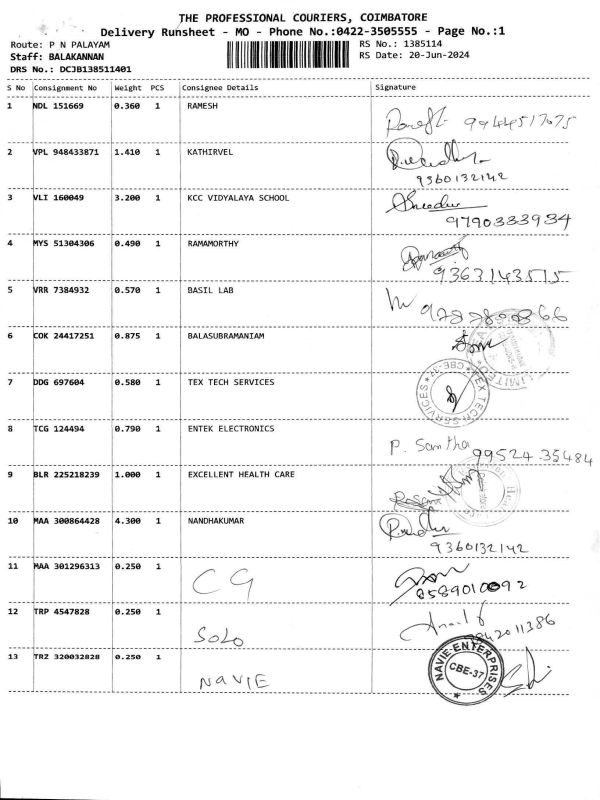 THE PROFESSIONAL COURIERS, COIMBATORE
Delivery Runsheet - MO - Phone No.:0422-3505555 - Page No.:1
Route: P N PALAYAM RS No.: 1385114
Staff: BALAKANNAN RS Date: 20-Jun-2024
DRS No.: DCJB138511401
S No Consignment No Weight PCS Consignee Details Signature
1 NDL 151669 0.360 1 RAMESH
99444517075
2 VPL 948433871 1.410 1 KATHIRVEL
9360132142
3 VLI 160049 3.200 1 KCC VIDYALAYA SCHOOL
9790333934
4 MYS 51304306 0.490 1 RAMAMORTHY
9363143515
5 VRR 7384932 0.570 1 BASIL LAB
6 COK 24417251 0.875 1 BALASUBRAMANIAM
LIMITED
7 DDG 697604 0.580 1 TEX TECH SERVICES
TEX TECH SERVICES CBE-37
8 TCG 124494 0.790 1 ENTEK ELECTRONICS
P. Santha 99524 35484
9 BLR 225218239 1.000 1 EXCELLENT HEALTH CARE
10 MAA 300864428 4.300 1 NANDHAKUMAR
9360132142
11 MAA 301296313 0.250 1 CG
8589010092
12 TRP 4547828 0.250 1 SOLO
9842011386
13 TRZ 320032828 0.250 1 NAVIE
NAVIE ENTERPRISES CBE-37